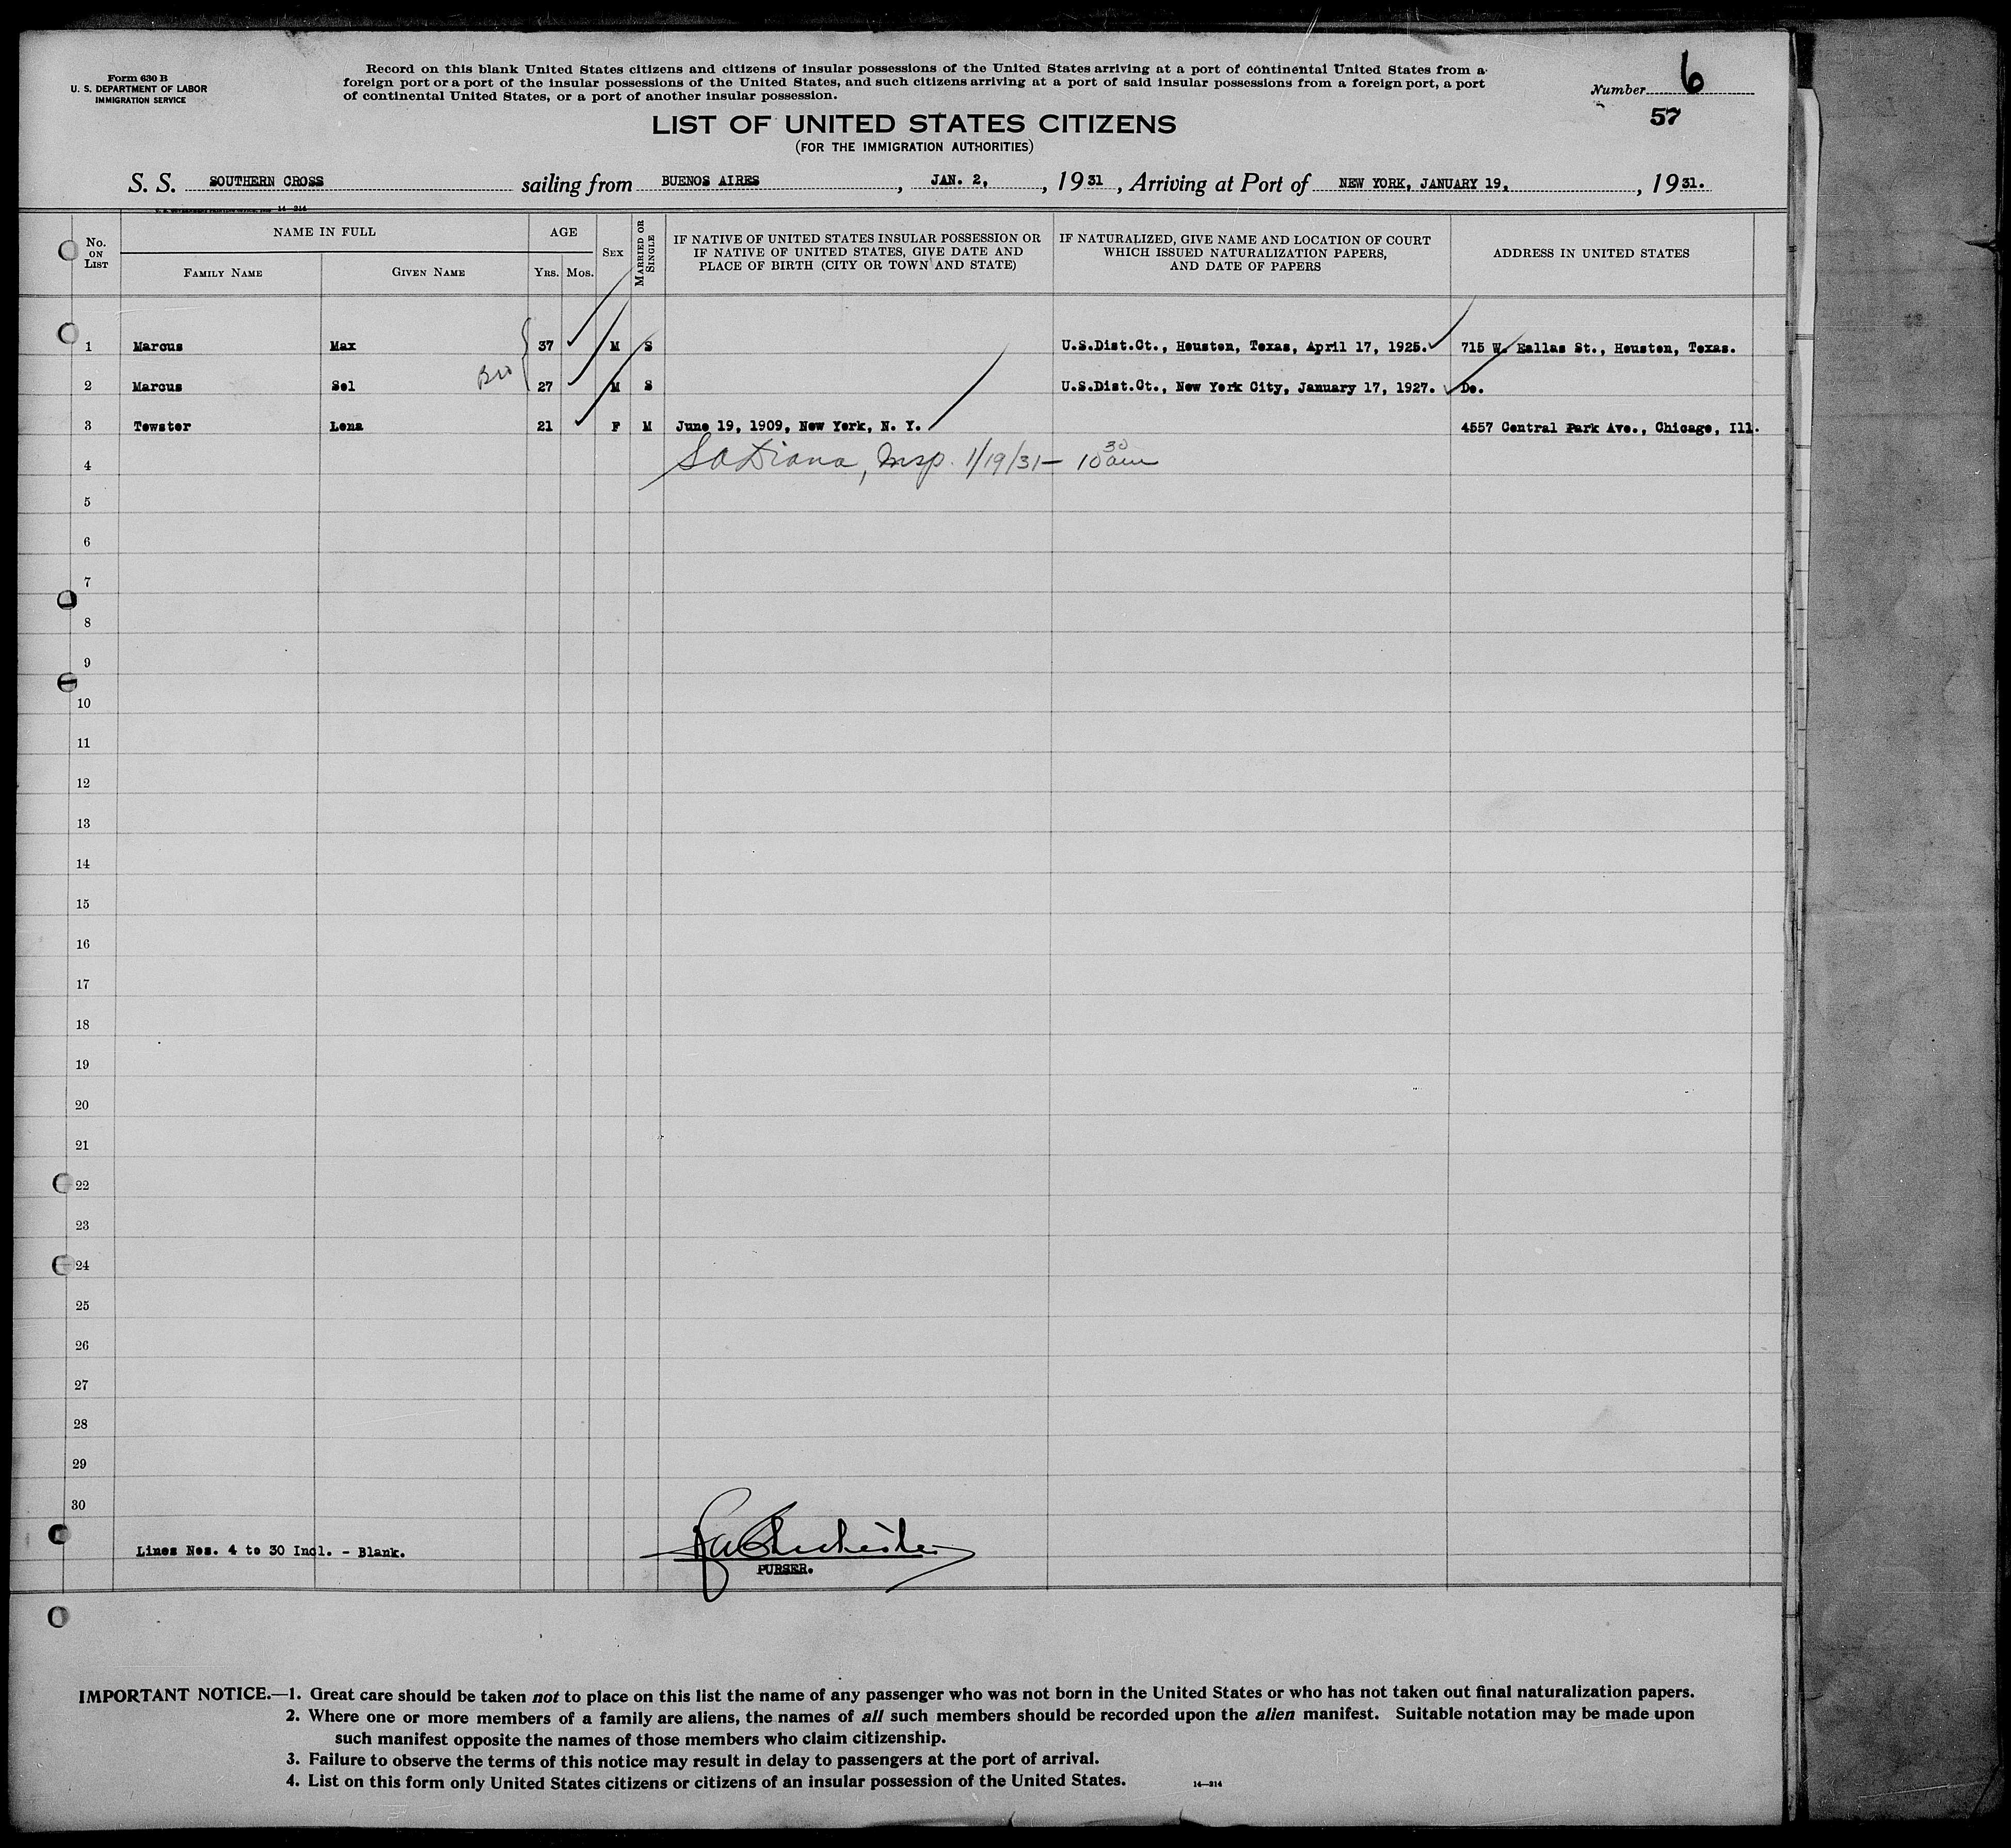 Form 630 B
U. S. DEPARTMENT OF LABOR
IMMIGRATION SERVICE
Record on this blank United States citizens and citizens of insular possessions of the United States arriving at a port of continental United States from a
foreign port or a port of the insular possessions of the United States, and such citizens arriving at a port of said insular possessions from a foreign port, a port
of continental United States, or a port of another insular possession.
Number 6
57
LIST OF UNITED STATES CITIZENS
(FOR THE IMMIGRATION AUTHORITIES)
S. S. SOUTHERN CROSS sailing from BUENOS AIRES, JAN. 2, , 1931, Arriving at Port of NEW YORK, JANUARY 19, , 1931.
14-314
No. ON LIST
NAME IN FULL
FAMILY NAME GIVEN NAME
AGE
YRS. MOS.
SEX
MARRIED OR SINGLE
IF NATIVE OF UNITED STATES INSULAR POSSESSION OR
IF NATIVE OF UNITED STATES, GIVE DATE AND
PLACE OF BIRTH (CITY OR TOWN AND STATE)
IF NATURALIZED, GIVE NAME AND LOCATION OF COURT
WHICH ISSUED NATURALIZATION PAPERS,
AND DATE OF PAPERS
ADDRESS IN UNITED STATES
1 Marcus Max 37 M S U.S.Dist.Ct., Houston, Texas, April 17, 1925. 715 W. Dallas St., Houston, Texas.
Bro
2 Marcus Sol 27 M S U.S.Dist.Ct., New York City, January 17, 1927. Do.
3 Towster Lena 21 F M June 19, 1909, New York, N. Y. 4557 Central Park Ave., Chicago, Ill.
4 Diana, Insp. 1/19/31 – 10 30 am
5
6
7
8
9
10
11
12
13
14
15
16
17
18
19
20
21
22
23
24
25
26
27
28
29
30
Lines Nos. 4 to 30 Incl. - Blank.
PURSER.
IMPORTANT NOTICE.—1. Great care should be taken not to place on this list the name of any passenger who was not born in the United States or who has not taken out final naturalization papers.
2. Where one or more members of a family are aliens, the names of all such members should be recorded upon the alien manifest. Suitable notation may be made upon
such manifest opposite the names of those members who claim citizenship.
3. Failure to observe the terms of this notice may result in delay to passengers at the port of arrival.
4. List on this form only United States citizens or citizens of an insular possession of the United States.
14—314